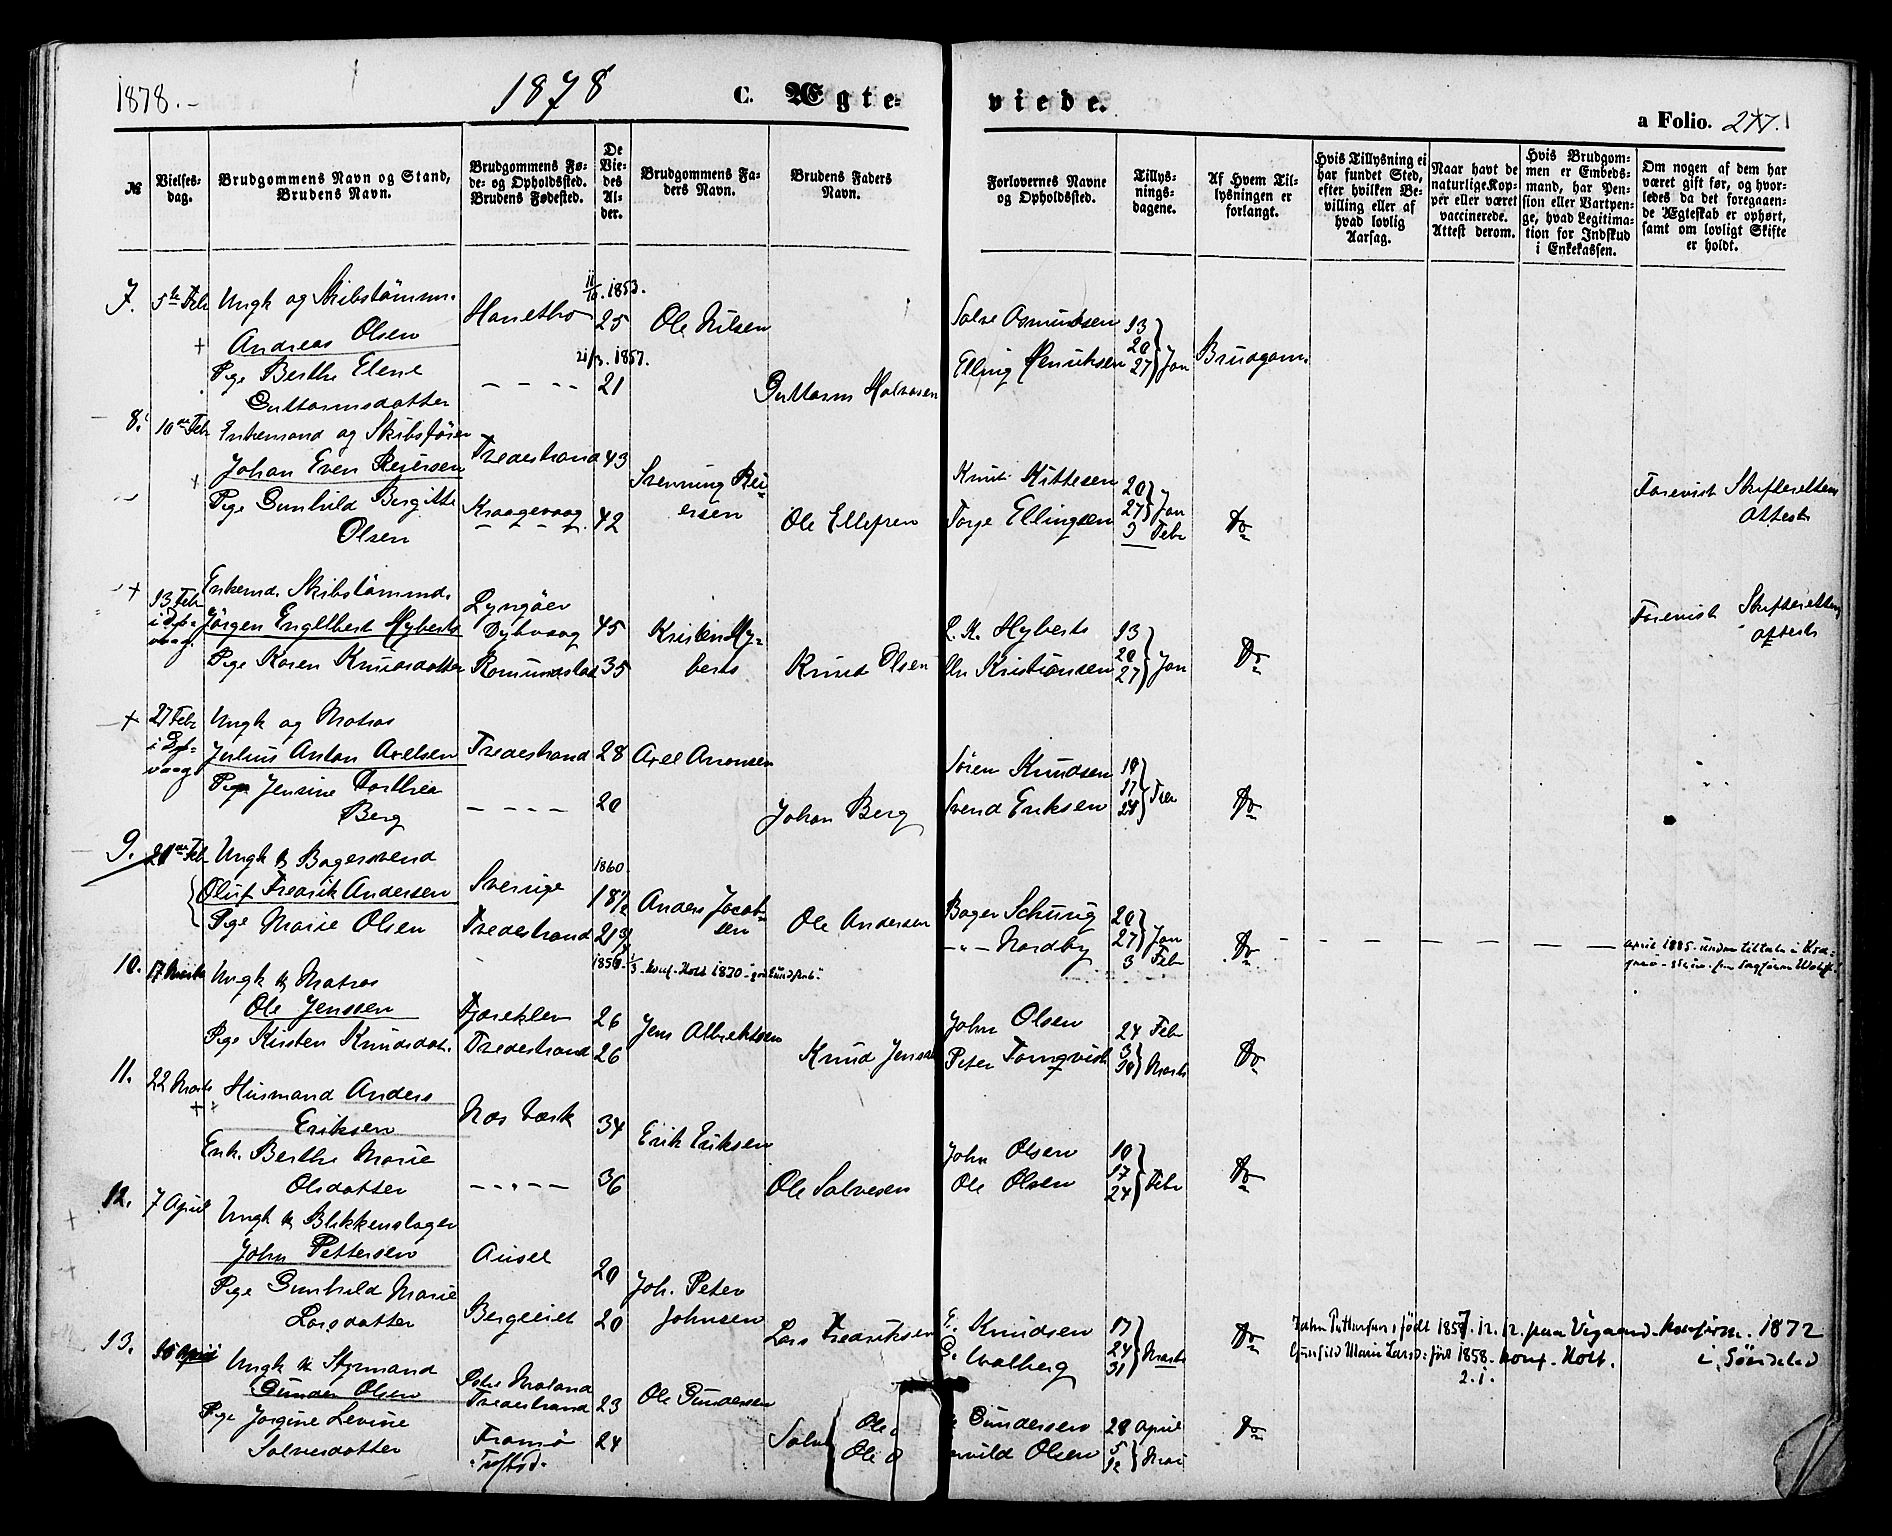 1878.-
1878
C. Ægte-
viede.
a Folio. 277.
№
Vielses-
dag.
Brudgommens Navn og Stand,
Brudens Navn.
Brudgommens Fø-
de- og Opholdssted.
Brudens Fødested.
De
Vie-
des
Al-
der.
Brudgommens Fa-
ders Navn.
Brudens Faders
Navn.
Forlovernes Navne
og Opholdssted.
Tillys-
nings-
dagene.
Af Hvem Til-
lysningen er
forlangt.
Hvis Tillysning ei
har fundet Sted,
efter hvilken Be-
villing eller af
hvad lovlig
Aarsag.
Naar havt de
naturlige Kop-
per eller været
vaccinerede.
Attest derom.
Hvis Brudgom-
men er Embeds-
mand, har Pen-
sion eller Vartpen-
ge, hvad Legitima-
tion for Indskud
i Enkekassen.
Om nogen af dem har
været gift før, og hvor-
ledes da det foregaaen-
de Ægteskab er ophørt,
samt om lovligt Skifte
er holdt.
7. 5te Febr Ungk og Skibstømm.
Andreas Olsen
11/10. 1853.
25 Ole Nilsen
Salve Osmundsen
13
20
27 } Jan
Elling Henriksen
Brudgom.
Pige Berthe Elene
Guttormsdatter
- - - -
21/3. 1857.
21
Guttorm Halvorsen
8. 10de Febr Enkemand og Skibsfører
Johan Even Reiersen
Tvedestrand 43
Svenning Rei-
ersen
Knud Kittesen
20
27 } Jan
3 Febr
Do
Forevist Skifterettens
Attest
Pige Gunhild Bergitte
Olsen
Kraagevaag 42
Ole Ellefsen
Torje Ellingsen
+ 13 Febr
i Dyb-
vaag.
Enkemd. Skibstømmd.
Jørgen Engelbert Hyberts
Lyngøer
Dybvaag 45
Kristen Hy-
berts
L. K. Hyberts
13
20
27 } Jan
Do
Forevist Skifterettens
Attest
Pige Karen Knudsdatter
Romundstad 35
Knud Olsen
Ole Kristiansen
+ 27 Febr
i Dyb-
vaag
Ungk og Matros
Julius Anton Axelsen
Tvedestrand 28 Axel Aronsen
Søren Knudsen
10
17
24 } Febr
Do
Pige Jensine Dorthea
Berg
- - - - 20
Johan Berg
Svend Eriksen
9. Ungk & Bagersvend
Oluf Fredrik Andersen
Sverige
1860.
18 1/2
Anders Jacob-
sen
Bager Schurig
20
27 } Jan
3 Febr
Do
Pige Marie Olsen
Tvedestrand 21
Ole Andersen
-"- Nordby
10. 17 Marts Ungk & Matros
Ole Jenssen
Fjæreklev 26
Jens Albrektsen
John Olsen
24 Febr
3
10 } Marts
Do
Pige Kirsten Knudsdat.
Tvedestrand 26
Knud Jenssen
Peter Tornqvist
11. 22 Marts Husmand Anders
Eriksen
Næs Værk 34
Erik Eriksen
John Olsen
10
17
24 } Febr
Do
Enk. Berthe Marie
Olsdatter
- - - - 36
Ole Salvesen
Ole Olsen
12. 7 April Ungk & Blikkenslager
John Pettersen
20
Joh. Peter
Johnsen
E. Knudsen
17
24
31 } Marts
Do
Pige Gunhild Marie
Larsdatter
Bergeiet 20
Lars Fredriksen
G. Walberg
John Pettersen, født 1857. 12.12. paa Vegaard. konfirm. 1872
i Søndeled
Gunhild Marie Larsd. fød 1858. konf. Holt.
2.1.
13. Ungk & Styrmand
Gunder Olsen
Østre Moland
Tvedestrand 23
Ole Gundersen
Gundersen
28 April
5
12 } Mai
Do
Pige Jørgine Levine
Salvesdatter
24
Ole
Ole O
Olsen